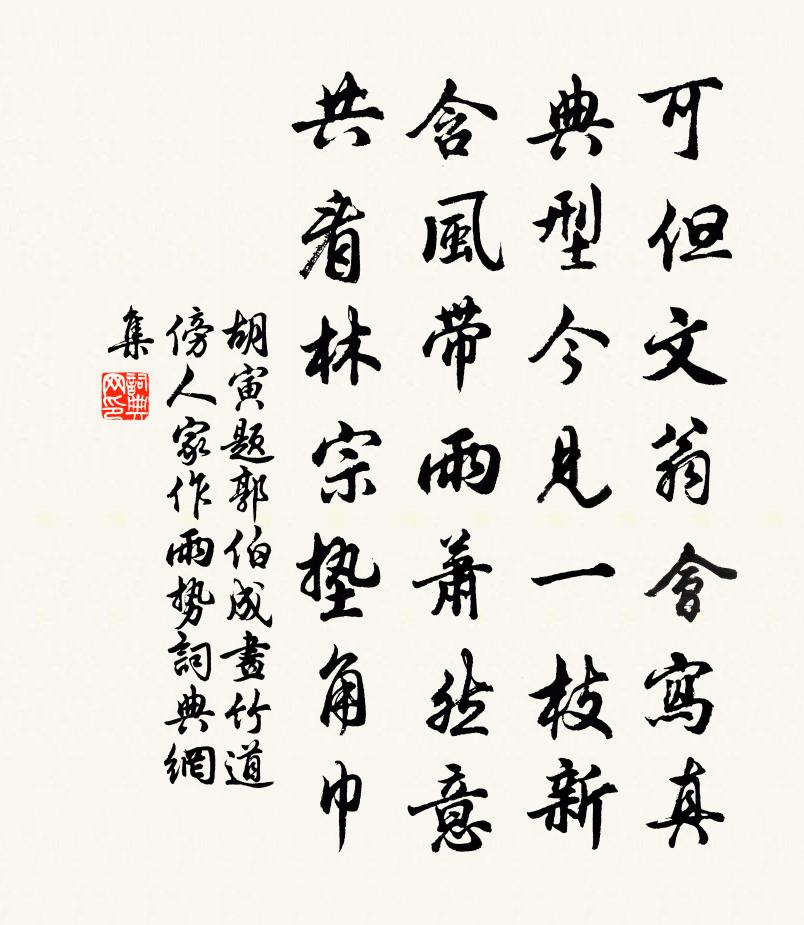 可但文翁會寫真
典型今見一枝新
含風帶雨蕭然意
共看林宗墊角巾
胡寅題郭伯成畫竹道
傍人家作雨勢詞典網
集
詞典
网印